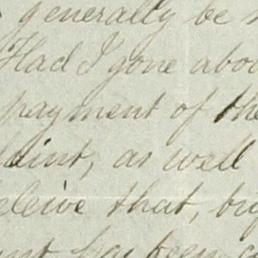 generally be
Had I gone abou
payment of the
laint, as well
ceive that, by
has been